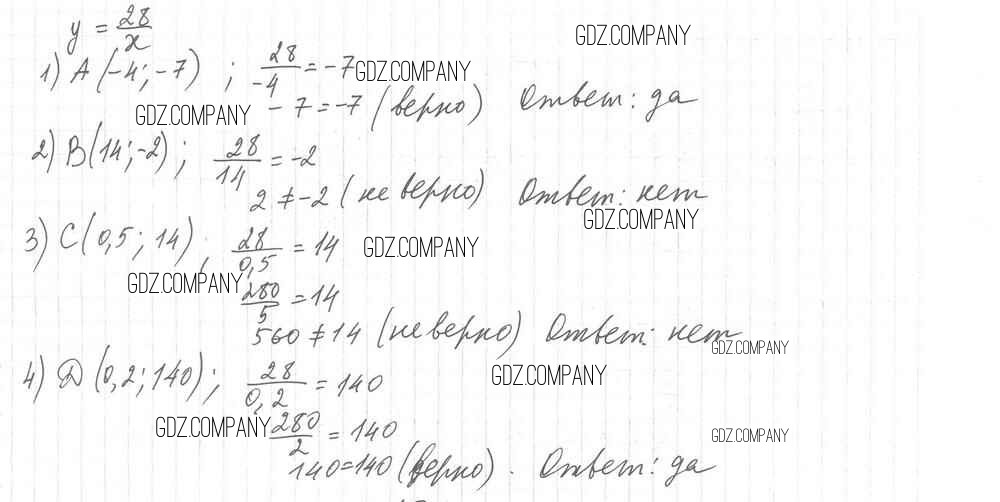 y = 28/x
GDZ.COMPANY
1) A(-4; -7) ; 28/-4 = -7 GDZ.COMPANY
GDZ.COMPANY -7 = -7 (верно) Ответ: да
2) B(14; -2) ; 28/14 = -2
2 ≠ -2 (не верно) Ответ: нет
GDZ.COMPANY
3) C(0,5; 14) ; 28/0,5 = 14 GDZ.COMPANY
GDZ.COMPANY 280/5 = 14
560 ≠ 14 (не верно) Ответ: нет
GDZ.COMPANY
4) D(0,2; 140) ; 28/0,2 = 140 GDZ.COMPANY
GDZ.COMPANY 280/2 = 140 GDZ.COMPANY
140 = 140 (верно). Ответ: да